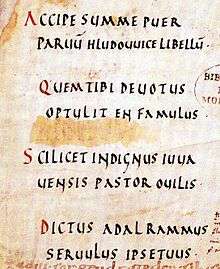 ACCIPE SUMME PUER
PARUŪ HLUDOUUICE LIBELLŪ·
QUEM TIBI DEUOTUS
OPTULIT EN FAMULUS
SCILICET INDIGNUS IUUA
UENSIS PASTOR OUILIS
DICTUS ADALRAMMUS
SERUULUS IPSE TUUS·